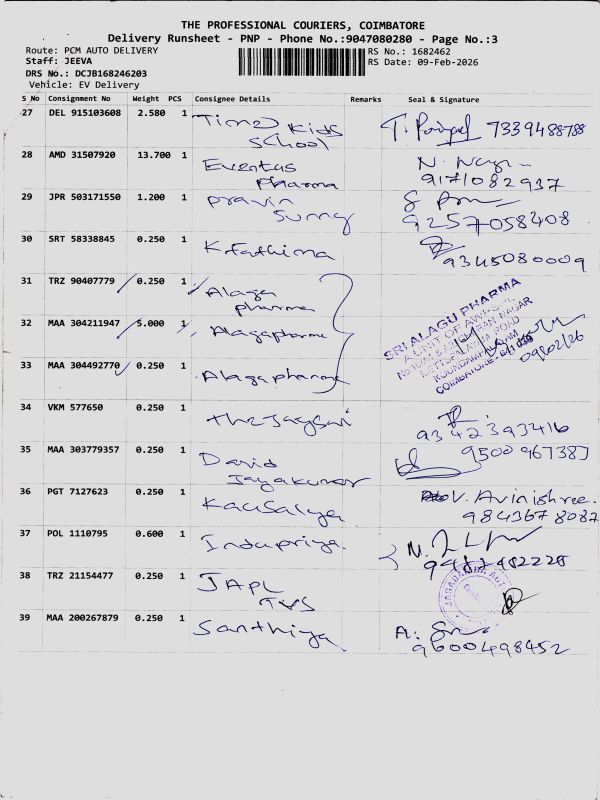 THE PROFESSIONAL COURIERS, COIMBATORE
Delivery Runsheet - PNP - Phone No.:9047080280 - Page No.:3
Route: PCM AUTO DELIVERY
RS No.: 1682462
Staff: JEEVA
RS Date: 09-Feb-2026
DRS No.: DCJB168246203
Vehicle: EV Delivery
S No Consignment No Weight PCS Consignee Details Remarks Seal & Signature
27 DEL 915103608 2.580 1 Times Kids 7339488788
School
28 AMD 31507920 13.700 1 Eventus
Pharma 9171082937
29 JPR 503171550 1.200 1 pravin
Sunny 9257058408
30 SRT 58338845 0.250 1 K. Fathima
9345080009
31 TRZ 90407779 0.250 1 Alaga
pharma
SRI ALAGU PHARMA
32 MAA 304211947 5.000 1 Alagapharma
09/02/26
33 MAA 304492770 0.250 1 Alaga pharma
34 VKM 577650 0.250 1 the Jaysai
9342393416
35 MAA 303779357 0.250 1 David 9500967387
Jayakumar
36 PGT 7127623 0.250 1 Kausalya V. Avinishree.
9843678087
37 POL 1110795 0.600 1 Indupriya.
9487482228
38 TRZ 21154477 0.250 1 JAPL
TVS
39 MAA 200267879 0.250 1 Santhiya
9600498452